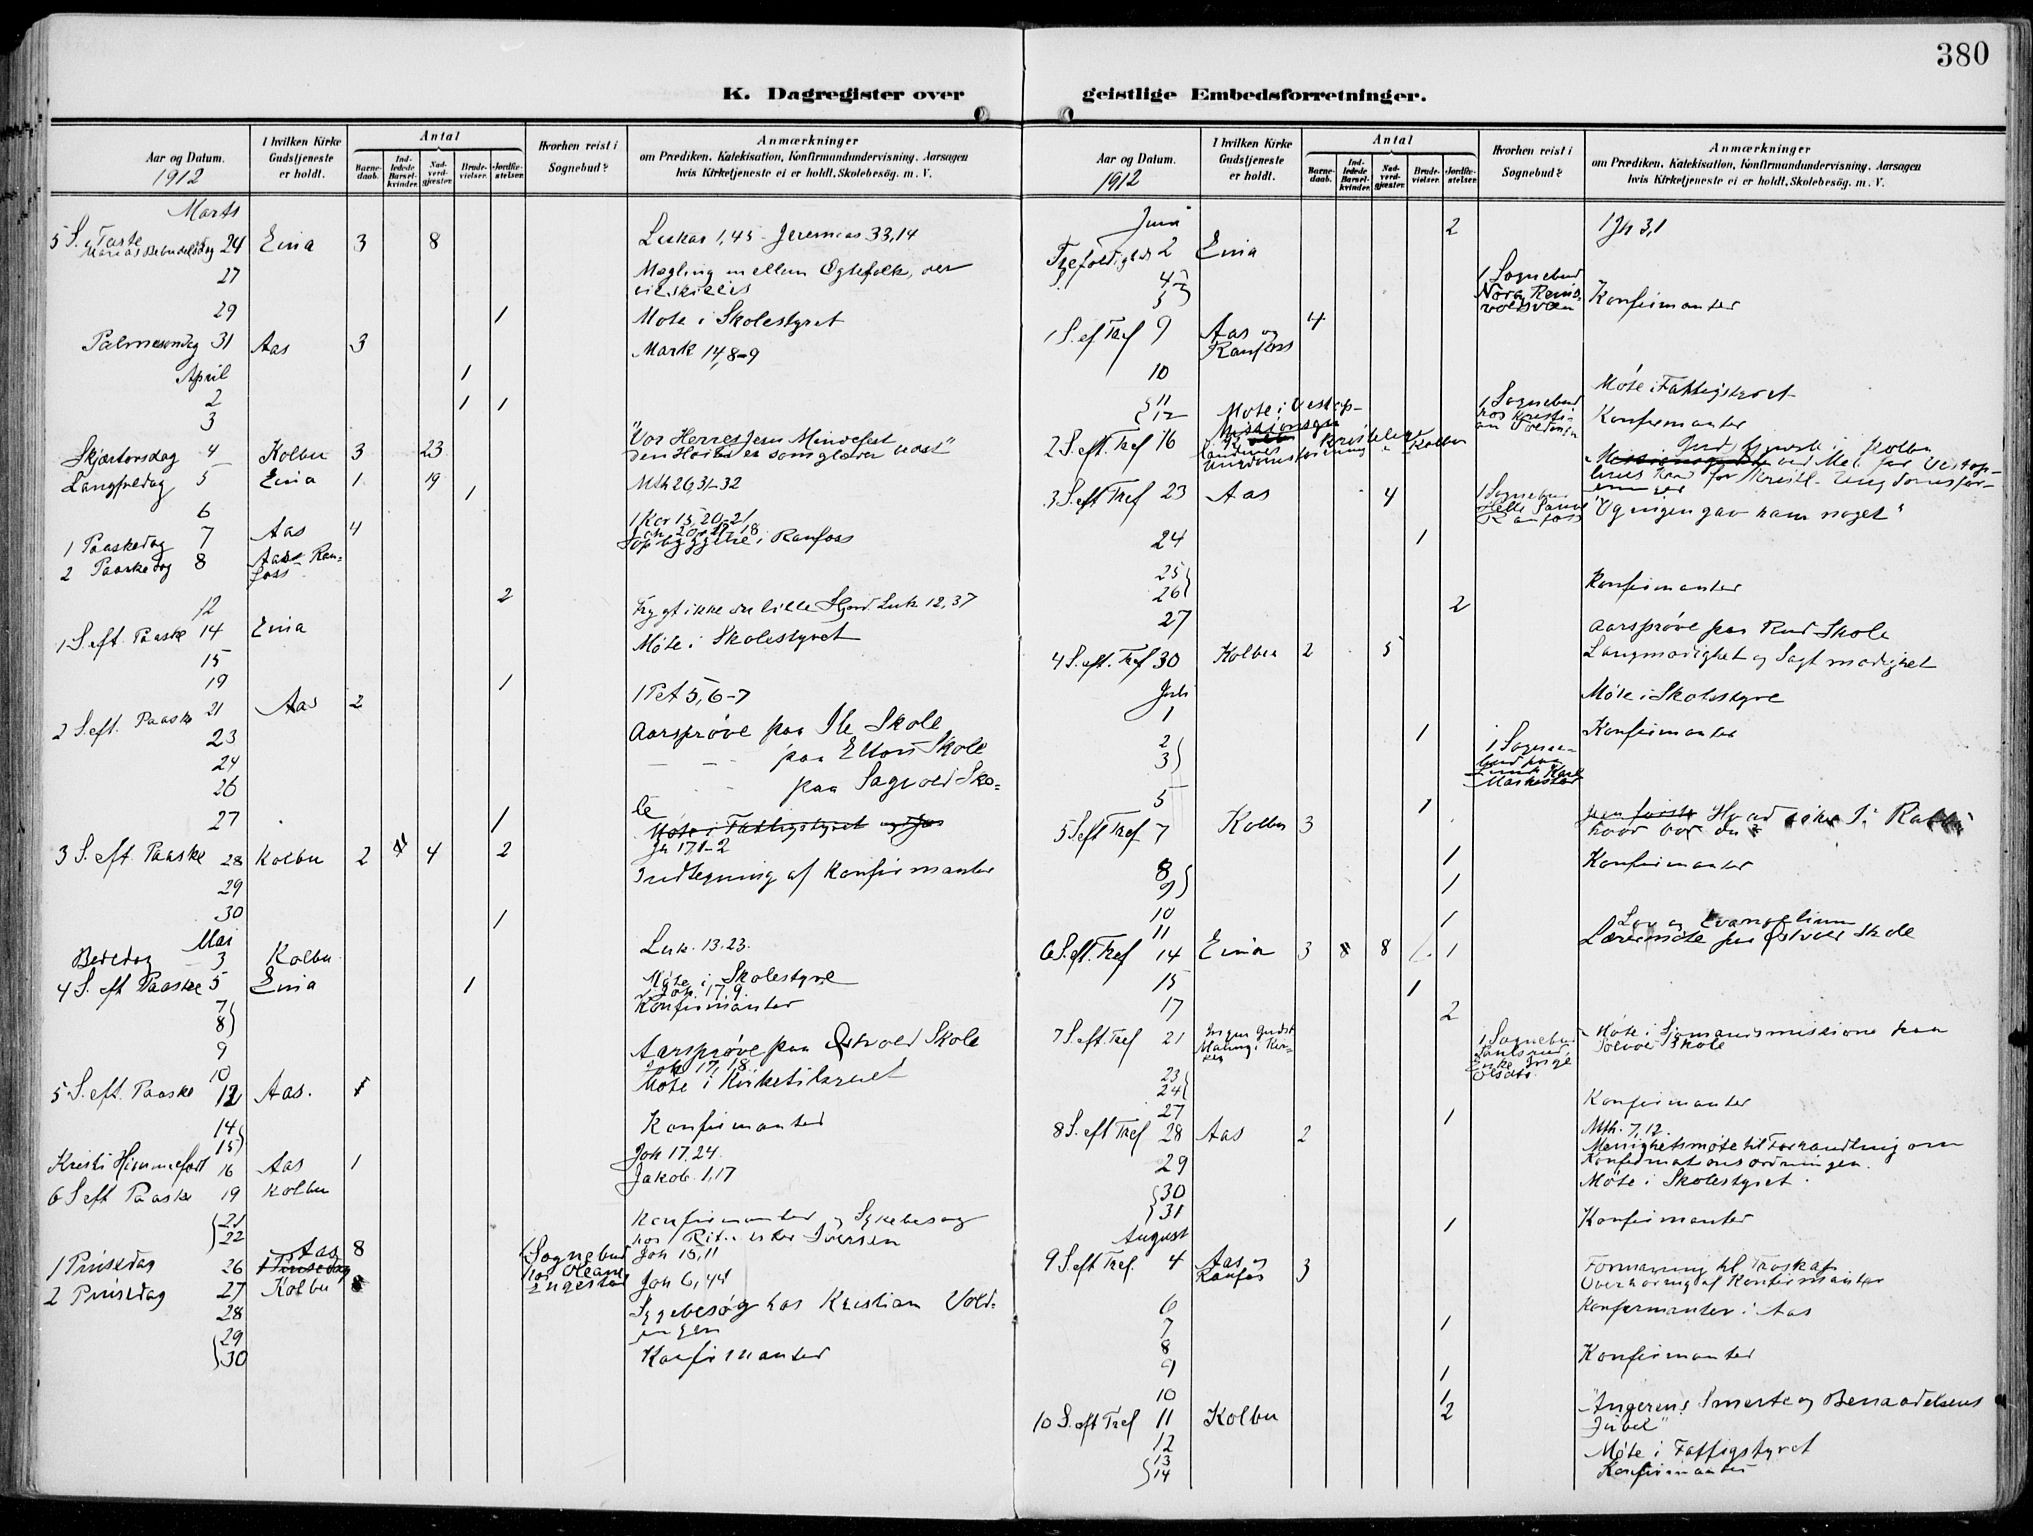 380
K. Dagregister over geistlige Embedsforretninger.
Aar og Datum.
1912
I hvilken Kirke Gudstjeneste er holdt.
Antal
Barnedaab.
Indledede Barselkvinder.
Nadverdgjester.
Brudevielser.
Jordfæstelser.
Hvorhen reist i Sognebud?
Anmærkninger
om Prædiken, Katekisation, Konfirmandundervisning, Aarsagen
hvis Kirketjeneste ei er holdt, Skolebesøg. m. V.
Marts
5 S. i Faste
Marias Bebudelsdag 24 Eina 3 8 Lukas 1,45 - Jeremias 33,14
27 Mægling mellem Ægtefolk, der
vil skilles
29 1 Møte i Skolestyret
Palmesøndag 31 Aas 3 Mark 14,8-9
April
1
2 1 1
3
Skjærtorsdag 4 Kolbu 3 23 "Vor Herres Jesu Mindefest
Langfredag 5 Eina 1 19 Mth 26,31-32
6 1
1 Paaskedag 7 Aas 4 1 Kor 15,20-21
2 Paaskedag 8 Aas - Ran-
foss
Opbyggelse i Ranfoss
12 2
1 S. eft. Paaske 14 Eina Frygt ikke du lille Hjord. Luk 12,37
15 Møte i Skolestyret
19 1
2 S. eft. Paaske 21 Aas 2 1 Pet 5,6-7
23 Aarsprøve paa Ile Skole
24 - - paa Elton Skole
26 - paa Sagvold Sko-
le
27 1 Møte i Fattigstyret
3 S. eft. Paaske 28 Kolbu 2 4 2 Jh 17,1-2
29 Indtegning af Konfirmanter
30 1
Mai
Bededag 3 Kolbu Luk. 13.23.
4 S. eft Paaske 5 Eina 1 Møte i Skolestyre
Joh. 17,9.
7
8 Konfirmanter
9 Aarsprøve paa Østvold Skole
10 Joh 17,18.
5 S. eft. Paaske 12 Aas. 1 Møte i Kirketilsynet
14
15 Konfirmanter
Kristi Himmelfart 16 Aas 1 Joh 17.24.
6 S eft Paaske 19 Kolbu Jakob. 1,17
21
22 Konfirmanter og Sykebesøg
1 Pinsedag 26 Aas 8 1 Sognebud
hos Oleane
Engestad
Joh 15,11
2 Pinsedag 27 Kolbu 8 Joh 6,44
28 Sygebesøg hos Kristian Vold-
ingen
29
30 Konfirmanter
Aar og Datum.
1912
I hvilken Kirke Gudstjeneste er holdt.
Antal
Barnedaab.
Indledede Barselkvinder.
Nadverdgjester.
Brudevielser.
Jordfæstelser.
Hvorhen reist i Sognebud?
Anmærkninger
om Prædiken, Katekisation, Konfirmandundervisning, Aarsagen
hvis Kirketjeneste ei er holdt, Skolebesøg. m. V.
Juni
Trefoldigh 2 Eina 2 1 Jh 3,1
4
5 1 Sognebud
Nora Reins-
voldsveen
Konfirmanter
1 S. ef Tref 9 Aas og
Ranfoss
4
10 Møte i Fattigstyret
11
12 1 Sognebud
hos Kristi-
an Voldingen
Konfirmanter
2 S. eft Tref 16 Møte i Vestop-
landenes Kristelige
Ungdomsforening i Kolbu
3 S. eft Tref 23 Aas 4 1 Sognebud
Ranfoss
"Og ingen gav ham noget"
24 1
25
26 Konfirmanter
27 2 Aarsprøve paa Rud Skole
4 S. eft. Tref 30 Kolbu 2 5 Langmodighet og Sagtmodighet
Juli
1 Møte i Skolestyre
2
3 1 Konfirmanter
5 1
5 S eft Tref 7 Kolbu 3 Hvad søke I? Rabbi
hvor bor du
8
9 1 1 Konfirmanter
10 1
11
6 S. eft. Tref 14 Eina 3 8 8 1 Lov og Evangelium
Lærermøte paa Østvold Skole
15 1
17 2
7 S. eft Tref 21 Ingen Gudst
Maling i Kir-
ken
1 Sognebud
Enke Inge
Olsdtr.
Møte i Sjømandsmissionen paa
Skole
23
24 Konfirmanter
27 1
8 S. eft Tref 28 Aas 2 Mth. 7,12.
Menighetsmøte til Forhandling om
Konfirmationsordningen.
29 Møte i Skolestyret.
30
31 1 Konfirmanter
August
9 S eft Tref 4 Aas og
Ranfos 3 Formaning til Troskap
Overhøring af Konfirmanter
6 Konfirmanter i Aas
7 1
8
9 1 Konfirmanter
10 1
10 S. eft Tref 11 Kolbu 2 "Angerens Smerte og Benaadelsens
Jubel"
12 Møte i Fattigstyret
13
14 Konfirmanter